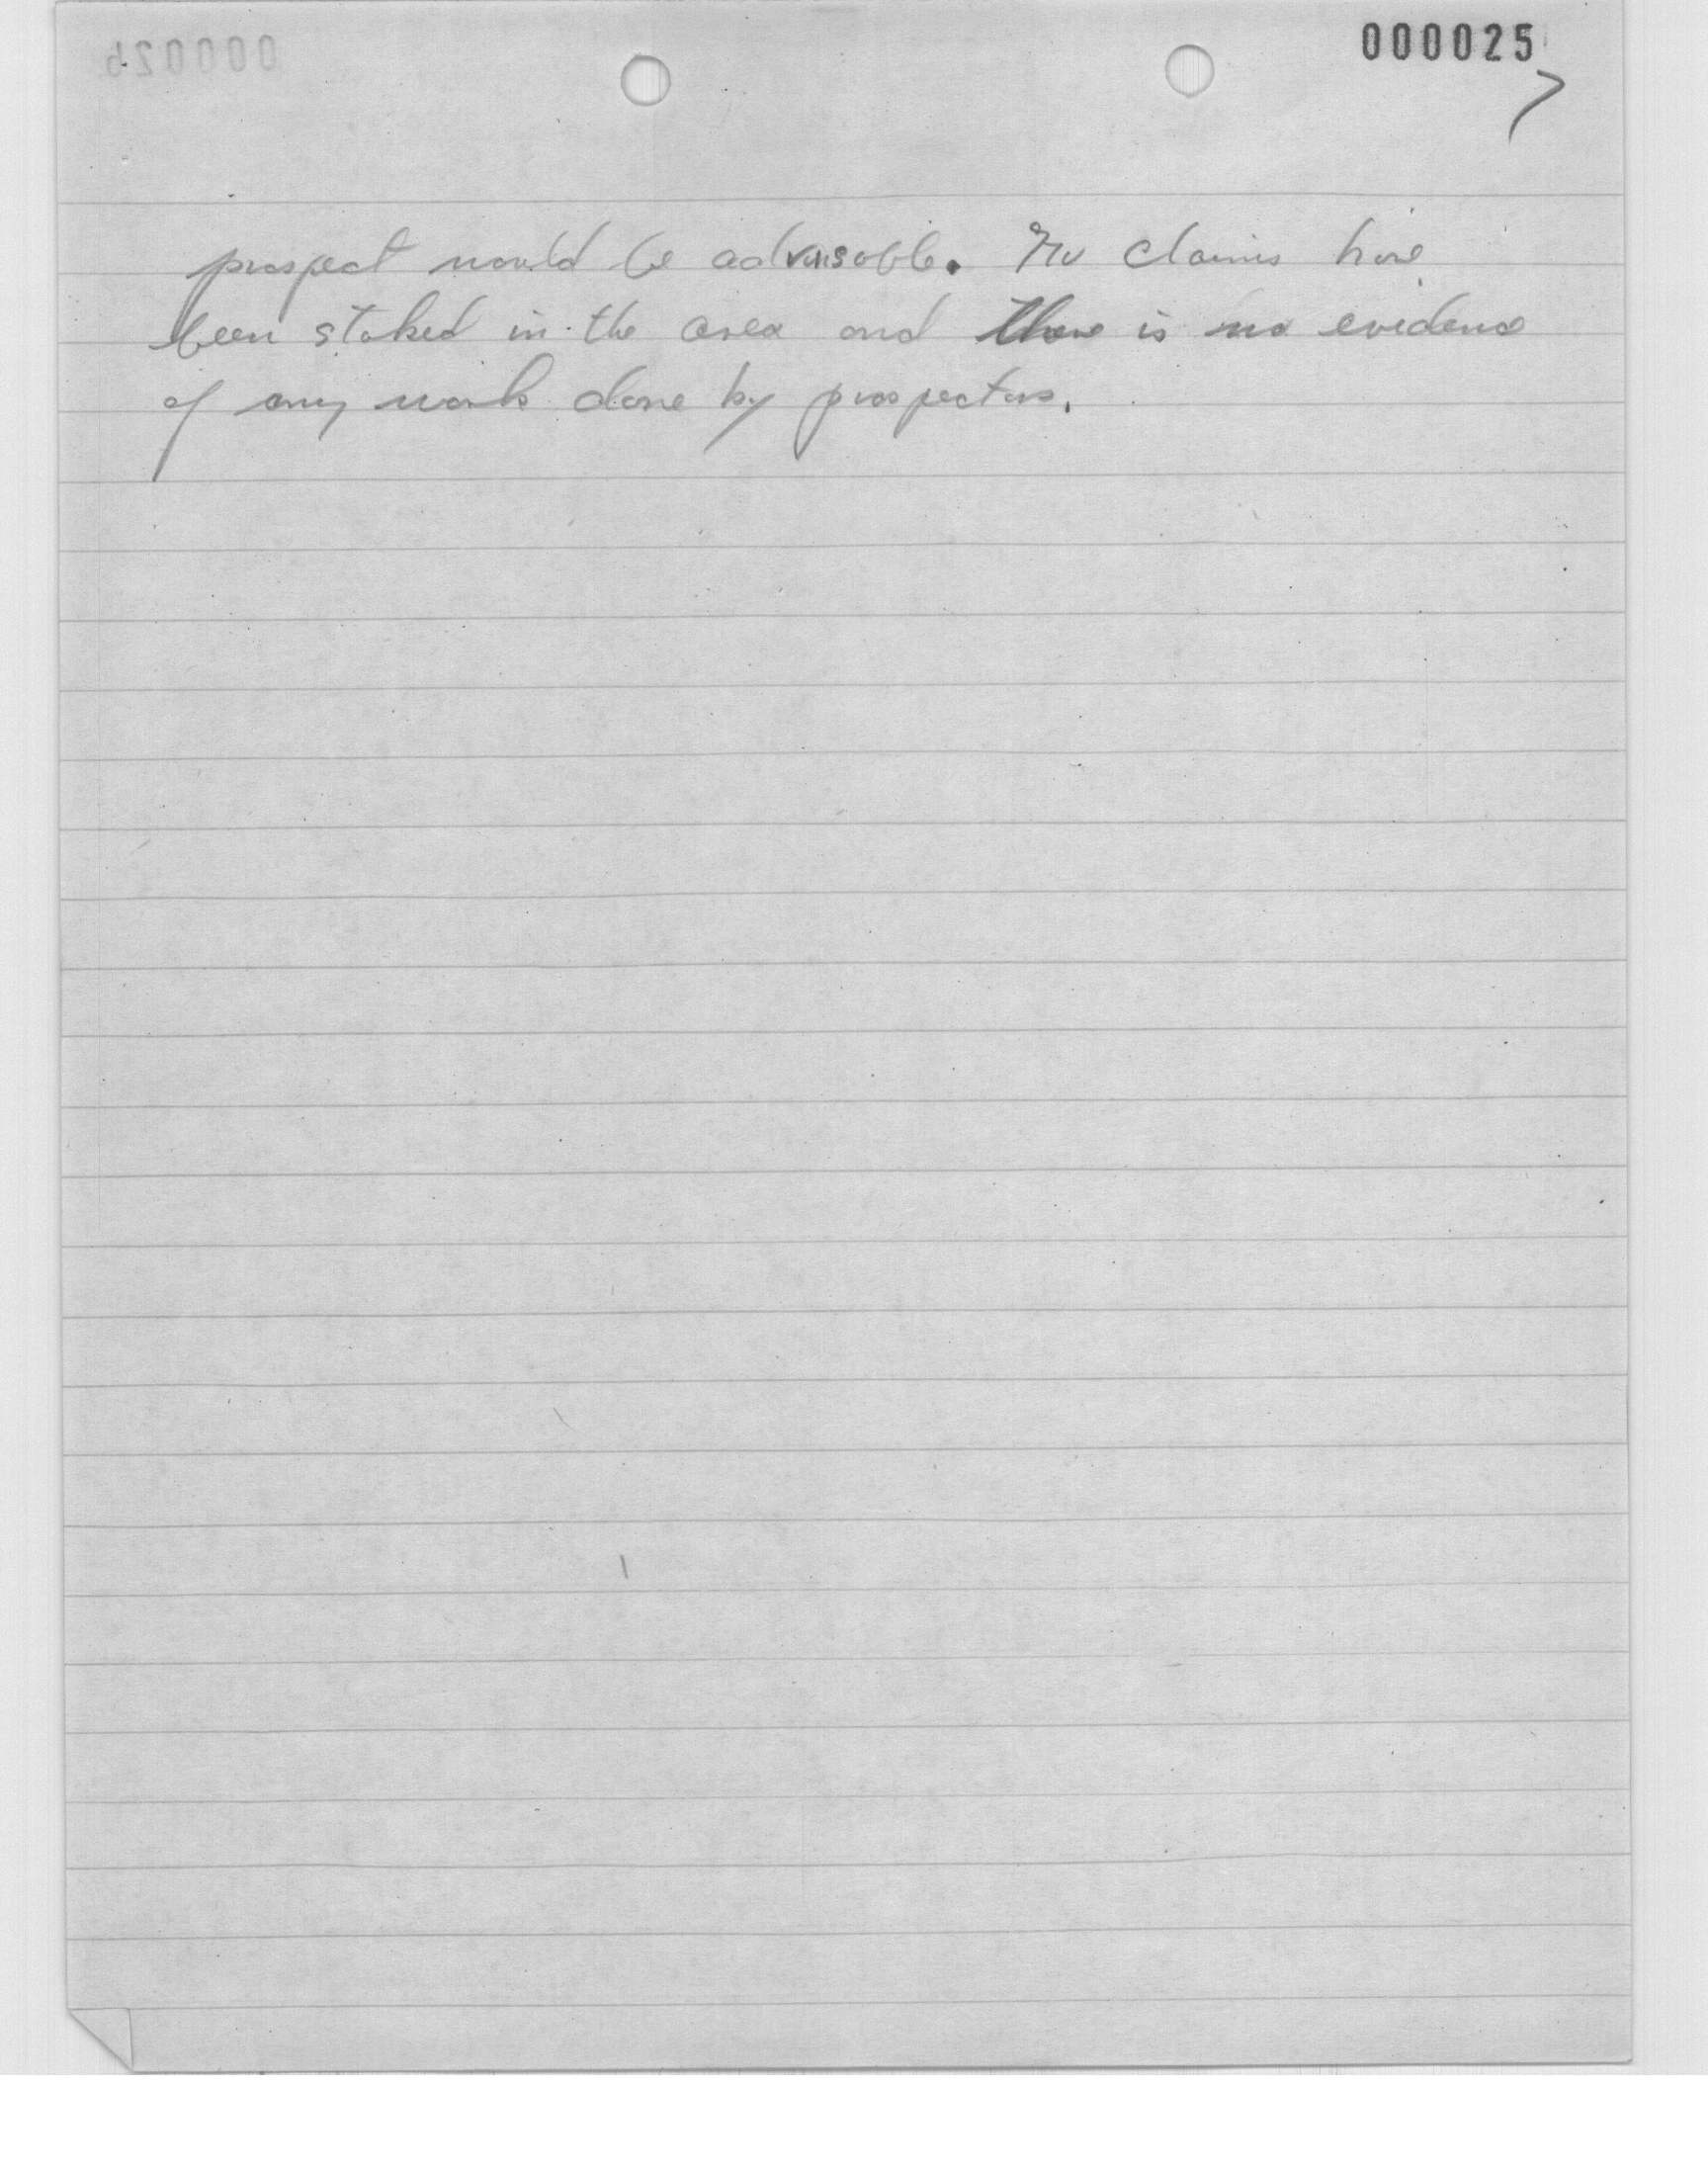 000025
7
prospect would be advisable. No claims have
been staked in the area and there is no evidence
of any work done by prospectors.